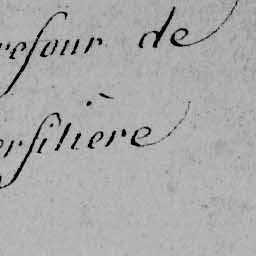 resour de
ersilière